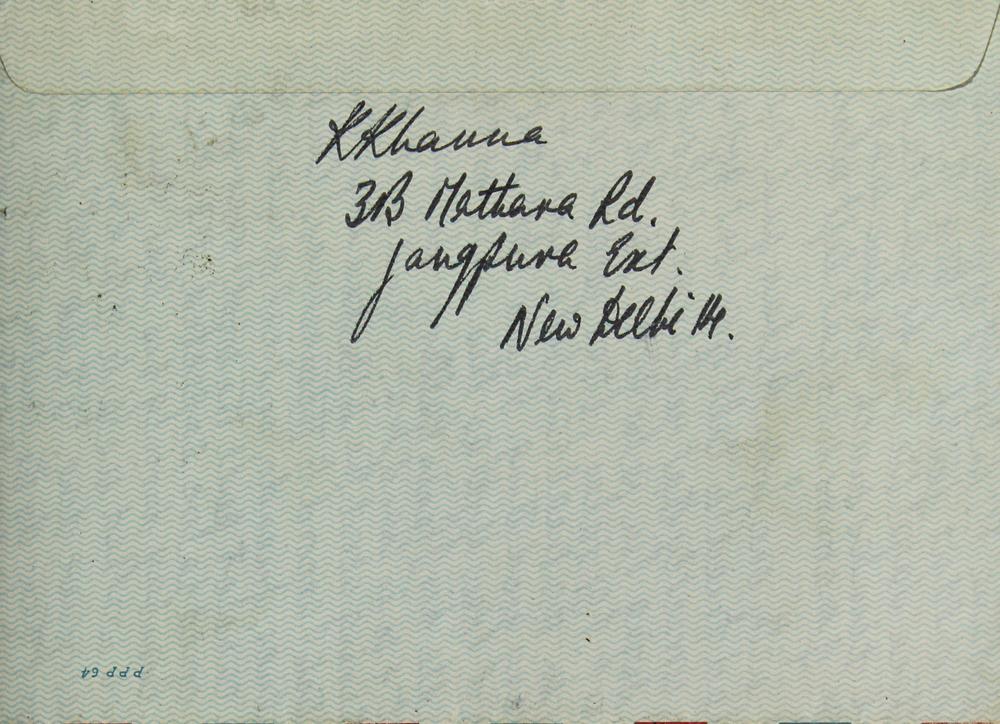 K Khanna
3B Mathura Rd.
Jangpura Ext.
New Delhi 14.
PPP 64